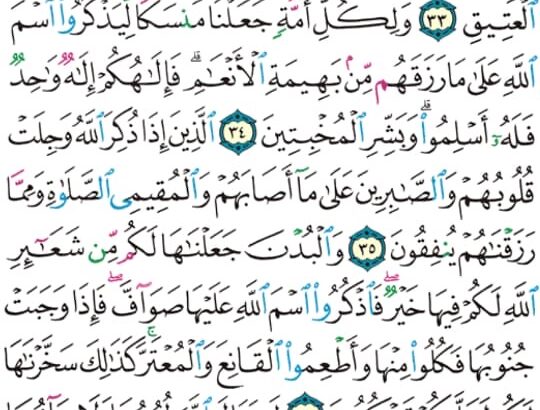 ٱلْعَتِيقِ ٣٣ وَلِكُلِّ أُمَّةٍ جَعَلْنَا مَنسَكًا لِّيَذْكُرُوا۟ ٱسْمَ
ٱللَّهِ عَلَىٰ مَا رَزَقَهُم مِّنۢ بَهِيمَةِ ٱلْأَنْعَـٰمِ ۗ فَإِلَـٰهُكُمْ إِلَـٰهٌ وَٰحِدٌ
فَلَهُۥٓ أَسْلِمُوا۟ ۗ وَبَشِّرِ ٱلْمُخْبِتِينَ ٣٤ ٱلَّذِينَ إِذَا ذُكِرَ ٱللَّهُ وَجِلَتْ
قُلُوبُهُمْ وَٱلصَّـٰبِرِينَ عَلَىٰ مَآ أَصَابَهُمْ وَٱلْمُقِيمِى ٱلصَّلَوٰةِ وَمِمَّا
رَزَقْنَـٰهُمْ يُنفِقُونَ ٣٥ وَٱلْبُدْنَ جَعَلْنَـٰهَا لَكُم مِّن شَعَـٰٓئِرِ
ٱللَّهِ لَكُمْ فِيهَا خَيْرٌ ۖ فَٱذْكُرُوا۟ ٱسْمَ ٱللَّهِ عَلَيْهَا صَوَآفَّ ۖ فَإِذَا وَجَبَتْ
جُنُوبُهَا فَكُلُوا۟ مِنْهَا وَأَطْعِمُوا۟ ٱلْقَانِعَ وَٱلْمُعْتَرَّ ۚ كَذَٰلِكَ سَخَّرْنَـٰهَا